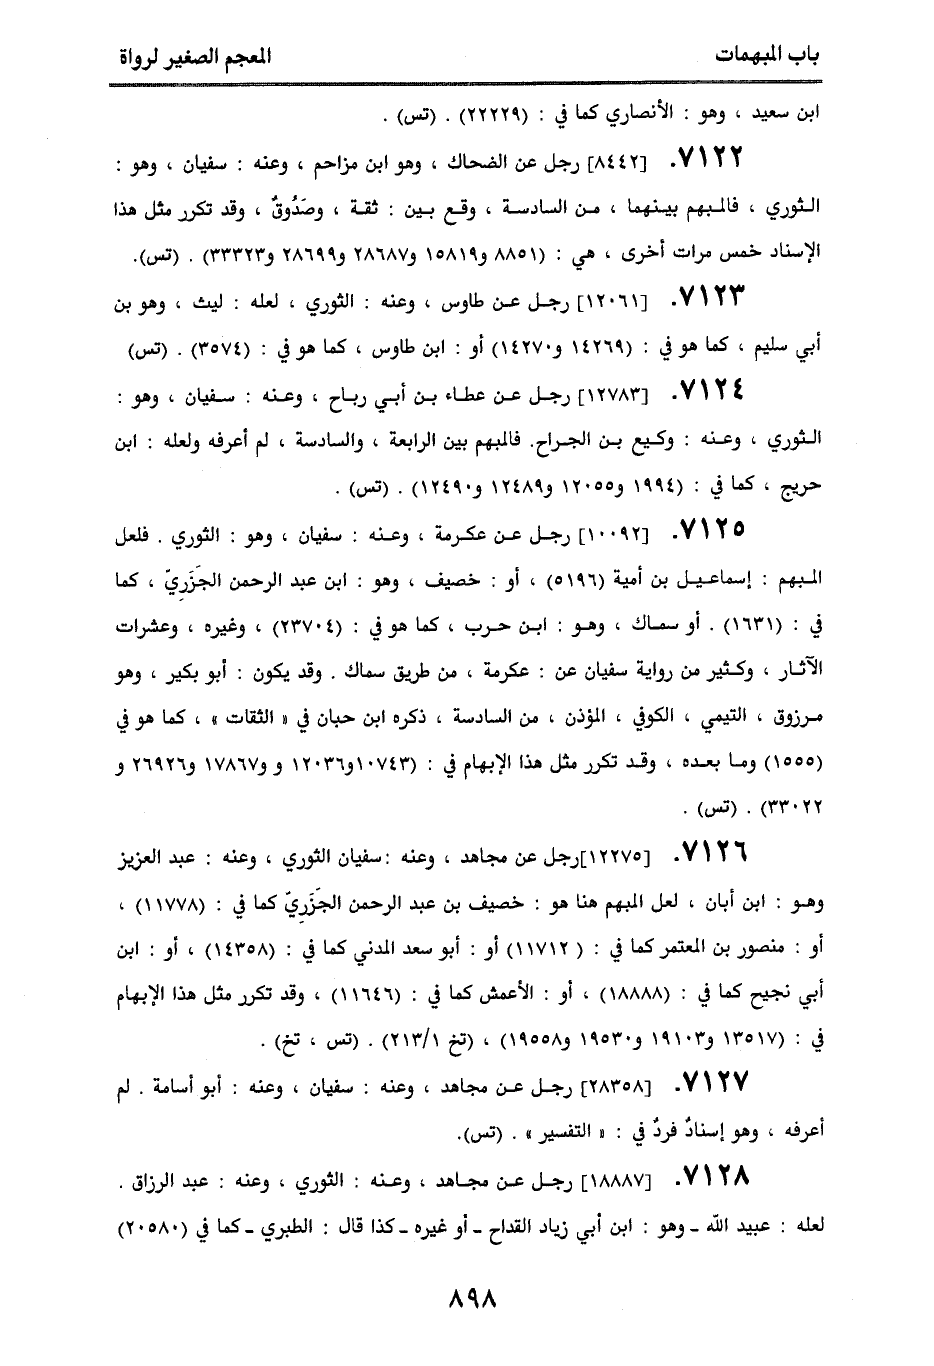 باب المبهمات
المعجم الصغير لرواة
ابن سعيد ، وهو : الأنصاري كما في : (٢٢٢٢٩) . (تس) .
٧١٢٢. [٨٤٤٢] رجل عن الضحاك ، وهو ابن مزاحم ، وعنه : سفيان ، وهو :
الثوري ، فالمبهم بينهما ، من السادسة ، وقع بين : ثقة ، وصَدُوقٌ ، وقد تكرر مثل هذا
الإسناد خمس مرات أخرى ، هي : (٨٨٥١ و١٥٨١٩ و٢٨٦٨٧ و٢٨٦٩٩ و٣٣٣٢٣) . (تس).
٧١٢٣. [١٢٠٦١] رجل عن طاوس ، وعنه : الثوري ، لعله : ليث ، وهو بن
أبي سليم ، كما هو في : (١٤٢٦٩ و١٤٢٧٠) أو : ابن طاوس ، كما هو في : (٣٥٧٤) . (تس)
٧١٢٤. [١٢٧٨٣] رجل عن عطاء بن أبي رباح ، وعنه : سفيان ، وهو :
الثوري ، وعنه : وكيع بن الجراح. فالمبهم بين الرابعة ، والسادسة ، لم أعرفه ولعله : ابن
حريج ، كما في : (١٩٩٤ و١٢٠٥٥ و١٢٤٨٩ و١٢٤٩٠) . (تس) .
٧١٢٥. [١٠٠٩٢] رجل عن عكرمة ، وعنه : سفيان ، وهو : الثوري . فلعل
المبهم : إسماعيل بن أمية (٥١٩٦) ، أو : خصيف ، وهو : ابن عبد الرحمن الجَزَرِيّ ، كما
في : (١٦٣١) . أو سماك ، وهو : ابن حرب ، كما هو في : (٢٣٧٠٤) ، وغيره ، وعشرات
الآثار ، وكثير من رواية سفيان عن : عكرمة ، من طريق سماك . وقد يكون : أبو بكير ، وهو
مرزوق ، التيمي ، الكوفي ، المؤذن ، من السادسة ، ذكره ابن حبان في « الثقات » ، كما هو في
(١٥٥٥) وما بعده ، وقد تكرر مثل هذا الإبهام في : (١٠٧٤٣و١٢٠٣٦ و و١٧٨٦٧ و٢٦٩٢٦ و
٣٣٠٢٢) . (تس) .
٧١٢٦. [١٢٢٧٥]رجل عن مجاهد ، وعنه :سفيان الثوري ، وعنه : عبد العزيز
وهو : ابن أبان ، لعل المبهم هنا هو : خصيف بن عبد الرحمن الجَزَرِيّ كما في : (١١٧٧٨) ،
أو : منصور بن المعتمر كما في : ( ١١٧١٢) أو : أبو سعد المدني كما في : (١٤٣٥٨) ، أو : ابن
أبي نجيح كما في : (١٨٨٨٨) ، أو : الأعمش كما في : (١١٦٤٦) ، وقد تكرر مثل هذا الإبهام
في : (١٣٥١٧ و١٩١٠٣ و١٩٥٣٠ و١٩٥٥٨) ، (تخ ٢١٣/١) . (تس ، تخ) .
٧١٢٧. [٢٨٣٥٨] رجل عن مجاهد ، وعنه : سفيان ، وعنه : أبو أسامة . لم
أعرفه ، وهو إسنادٌ فردٌ في : « التفسير » . (تس).
٧١٢٨. [١٨٨٨٧] رجل عن مجاهد ، وعنه : الثوري ، وعنه : عبد الرزاق .
لعله : عبيد الله ـ وهو : ابن أبي زياد القداح ـ أو غيره ـ كذا قال : الطبري ـ كما في (٢٠٥٨٠)
٨٩٨